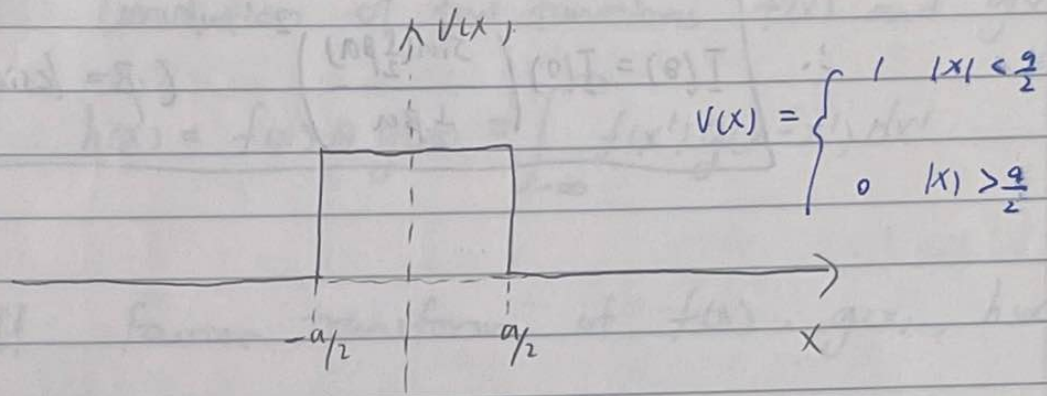 V(x)
V(x) = { 1 |x| < a/2
0 |x| > a/2
-a/2 a/2 x